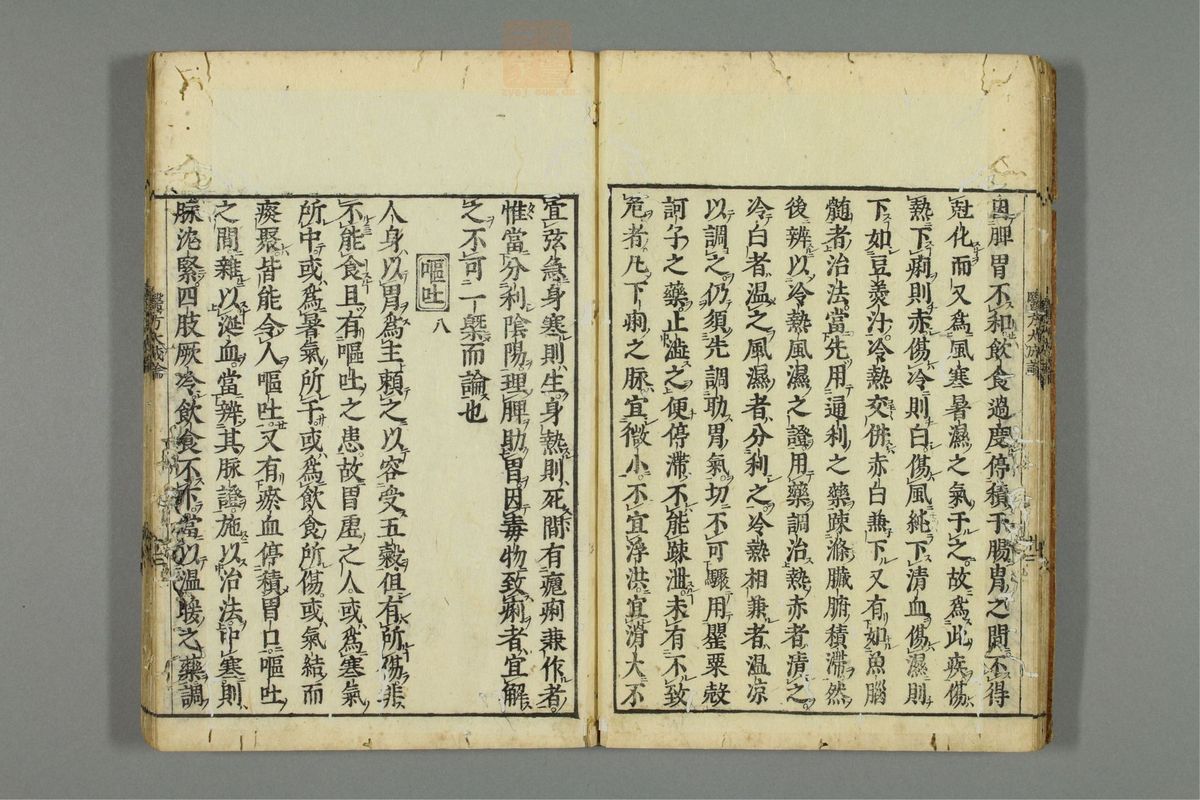 因脾胃不和飲食過度停積于腸胃之間不得
尅化而又爲風寒暑濕之氣干之故爲此疾傷
熱下痢則赤傷冷則白傷風純下清血傷濕則
下如豆羹汁冷熱交併赤白兼下又有如魚腦
髓者治法當先用通利之藥疎滌臟腑積滯然
後辨以冷熱風濕之證用藥調治熱赤者清之
冷白者温之風濕者分利之冷熱相兼者温凉
以調之仍須先調助胃氣切不可驟用罌粟殼
訶子之藥止澁之便停滯不能疎泄未有不致
危者凡下痢之脉宜微小不宜浮洪宜滑大不
宜弦急身寒則生身熱則死間有瘧痢兼作者
惟當分利陰陽理脾助胃因毒物致痢者宜解
之不可一槩而論也
嘔吐 八
人身以胃爲主頼之以容受五穀但有所傷非
不能食且有嘔吐之患故胃虛之人或爲寒氣
所中或爲暑氣所干或爲飲食所傷或氣結而
痰聚皆能令人嘔吐又有瘀血停積胃口嘔吐
之間雜以涎血當辨其脉證施以治法中寒則
脉沈緊四肢厥冷飲食不下當以温暖之藥調
醫方大成論